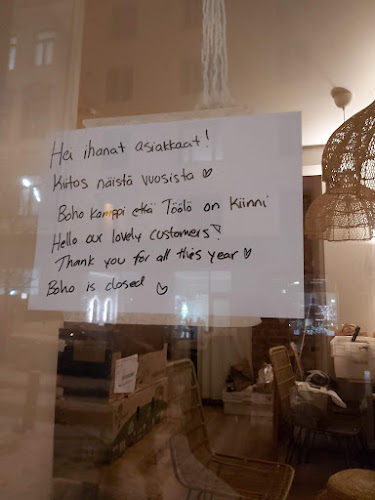 Hei ihanat asiakkaat!
Kiitos näistä vuosista ♡
Boho kamppi että Töölö on kiinni
Hello our lovely customers!
Thank you for all this year ♡
Boho is closed ♡